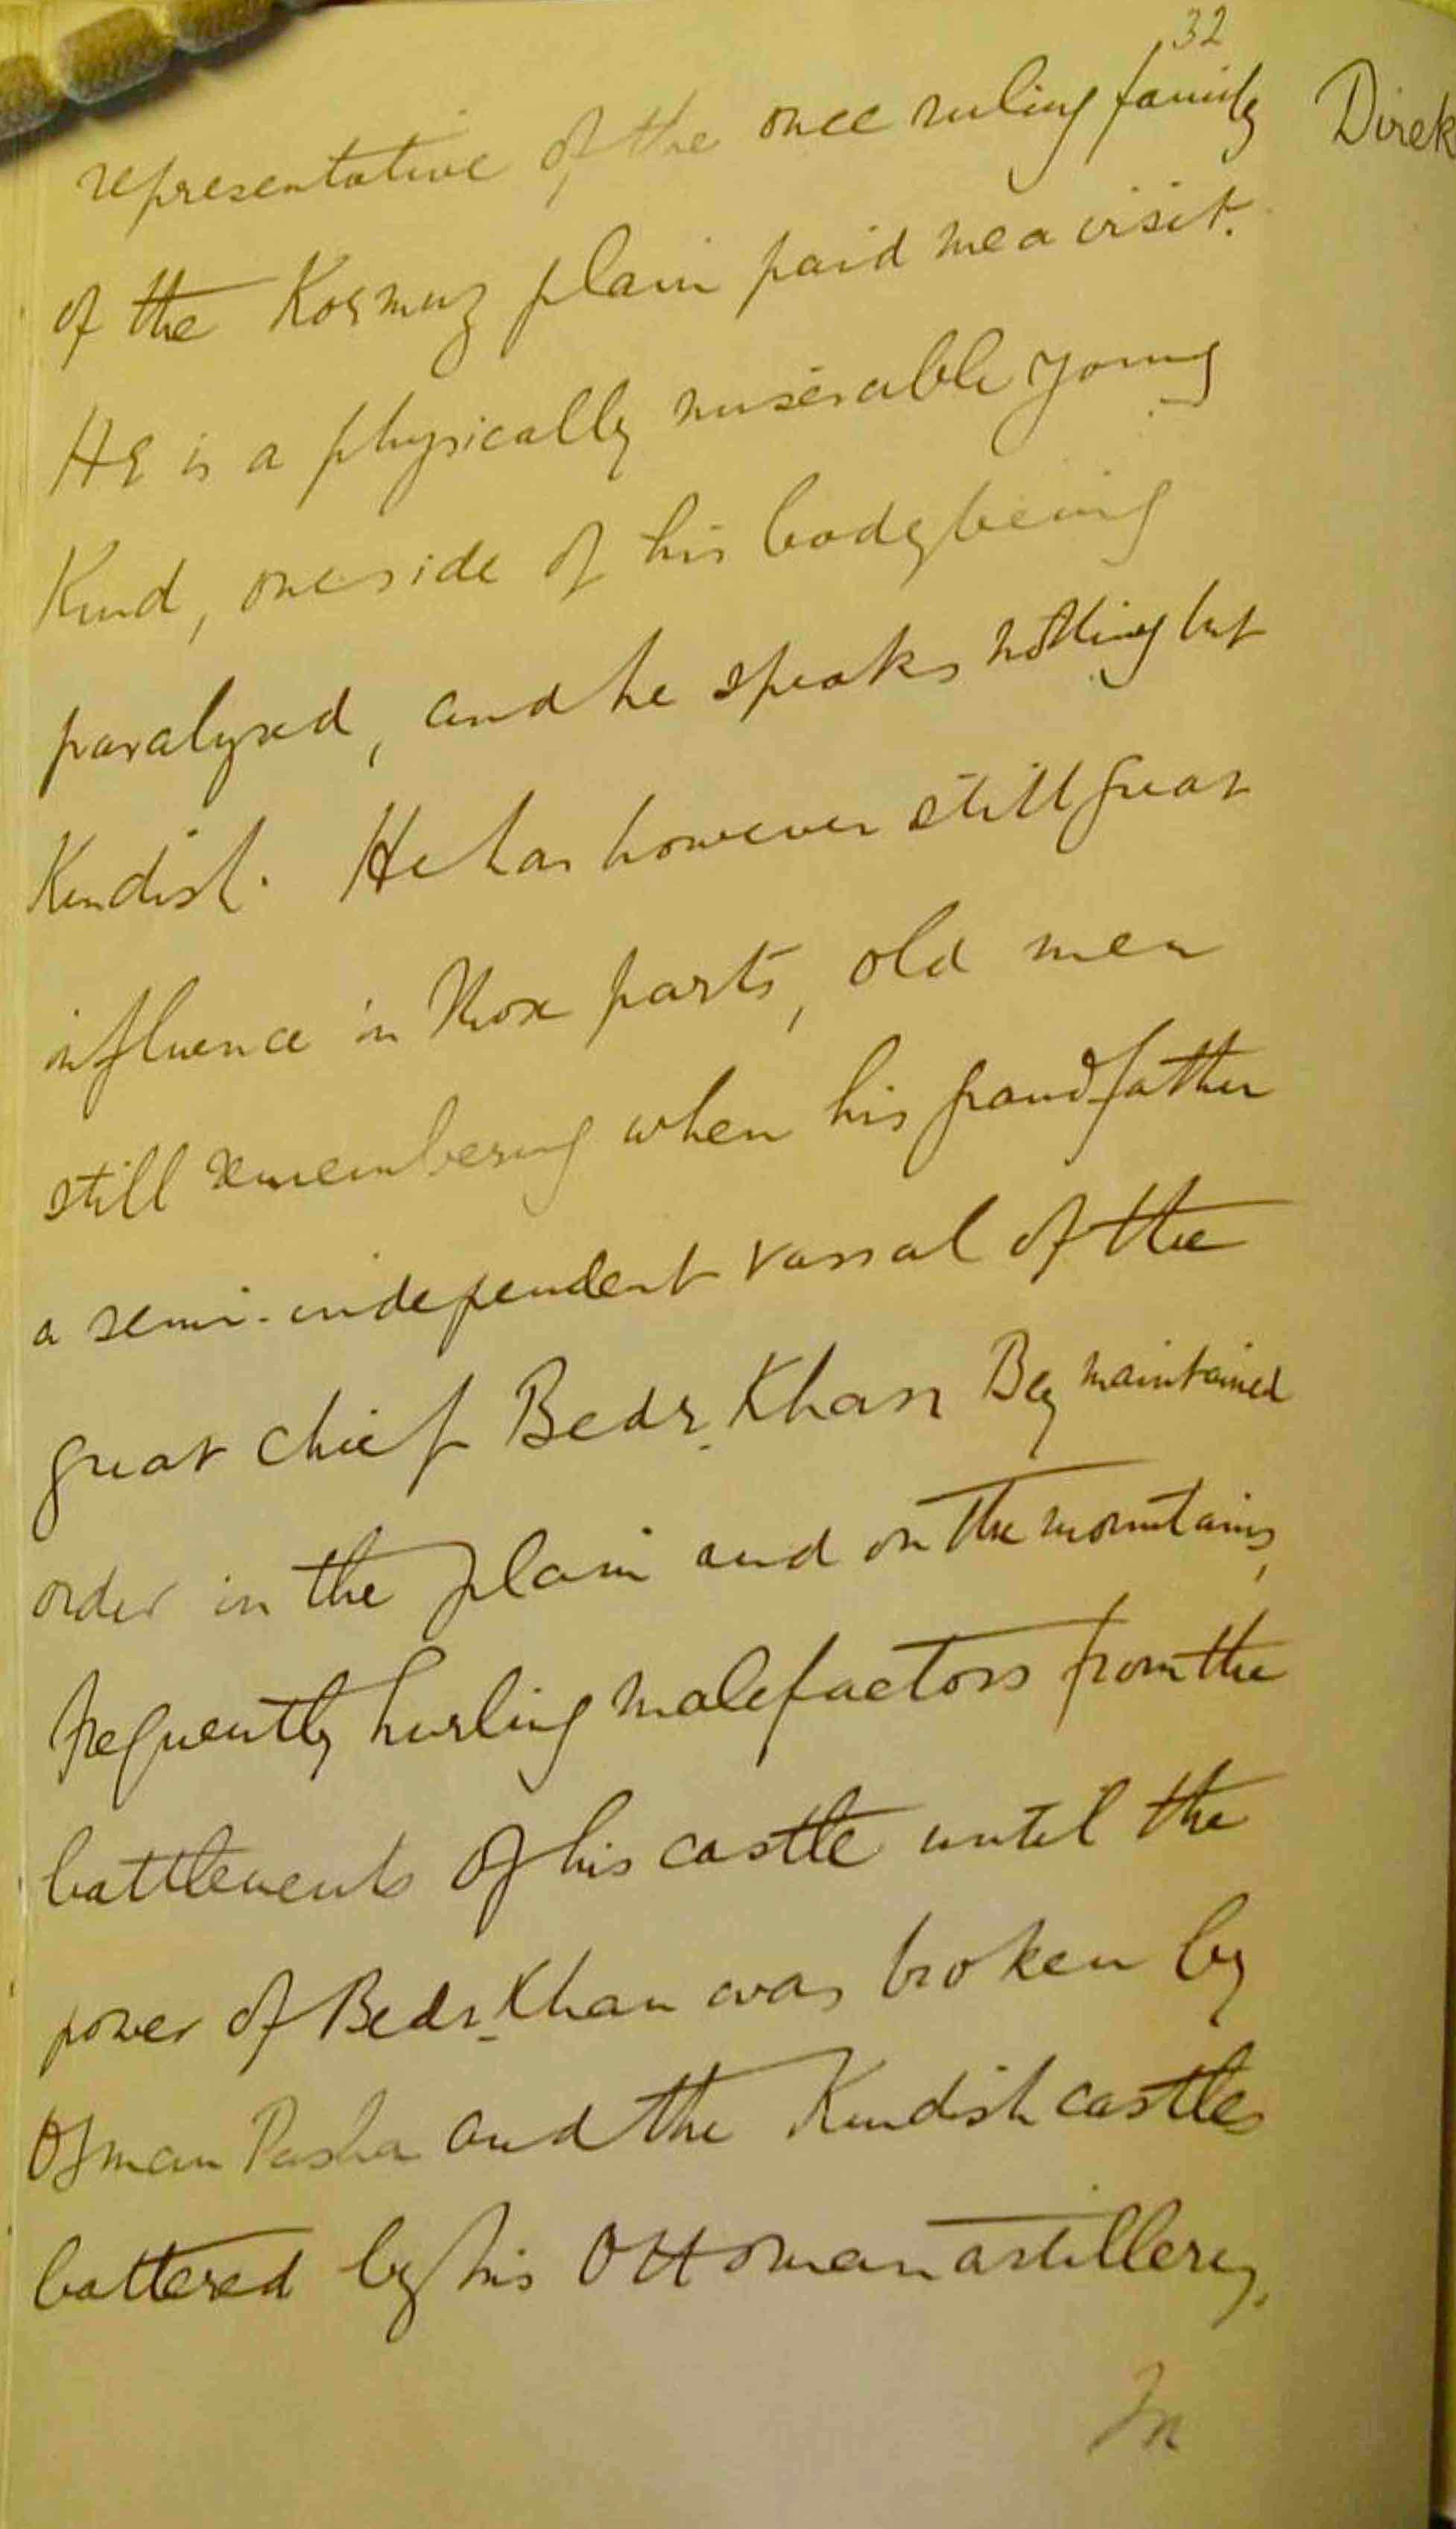 32
representative of the once ruling family
Direk
of the Kosmuz plain paid me a visit.
He is a physically miserable young
Kurd, one side of his body being
paralysed, and he speaks nothing but
Kurdish. He has however still great
influence in those parts, old men
still remembering when his grandfather
a semi-independent vassal of the
great chief Bedr Khan Beg maintained
order in the plain and on the mountains,
frequently hurling malefactors from the
battlements of his castle until the
power of Bedr Khan was broken by
Osman Pasha and the Kurdish castles
battered by his Ottoman artillery.
In